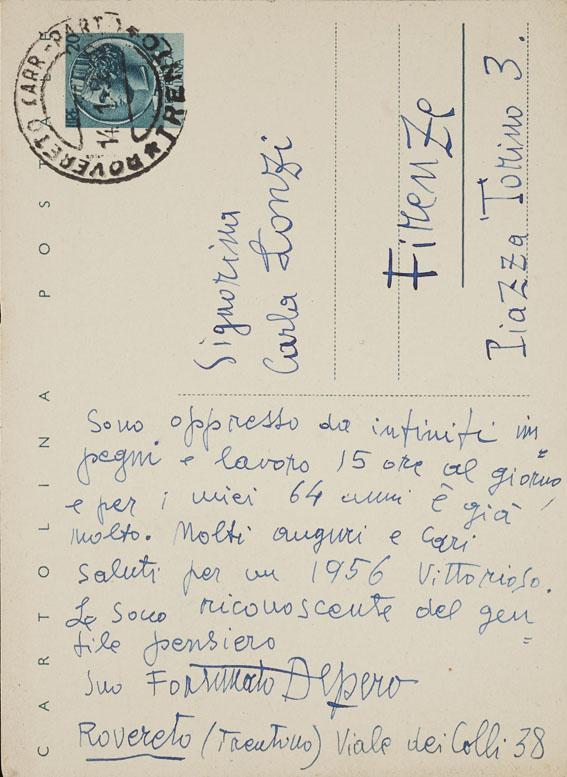 ROVERETO (ARR-PART.) * TRENTO *
20
14
CARTOLINA POSTALE
Signorina
Carla Lonzi
Firenze
Piazza Torino 3.
Sono oppresso da infiniti im=
pegni e lavoro 15 ore al giorno
e per i miei 64 anni è già
molto. Molti auguri e cari
saluti per un 1956 Vittorioso.
Le sono riconoscente del gen=
tile pensiero
Suo Fortunato Depero
Rovereto (Trentino) Viale dei Colli 38